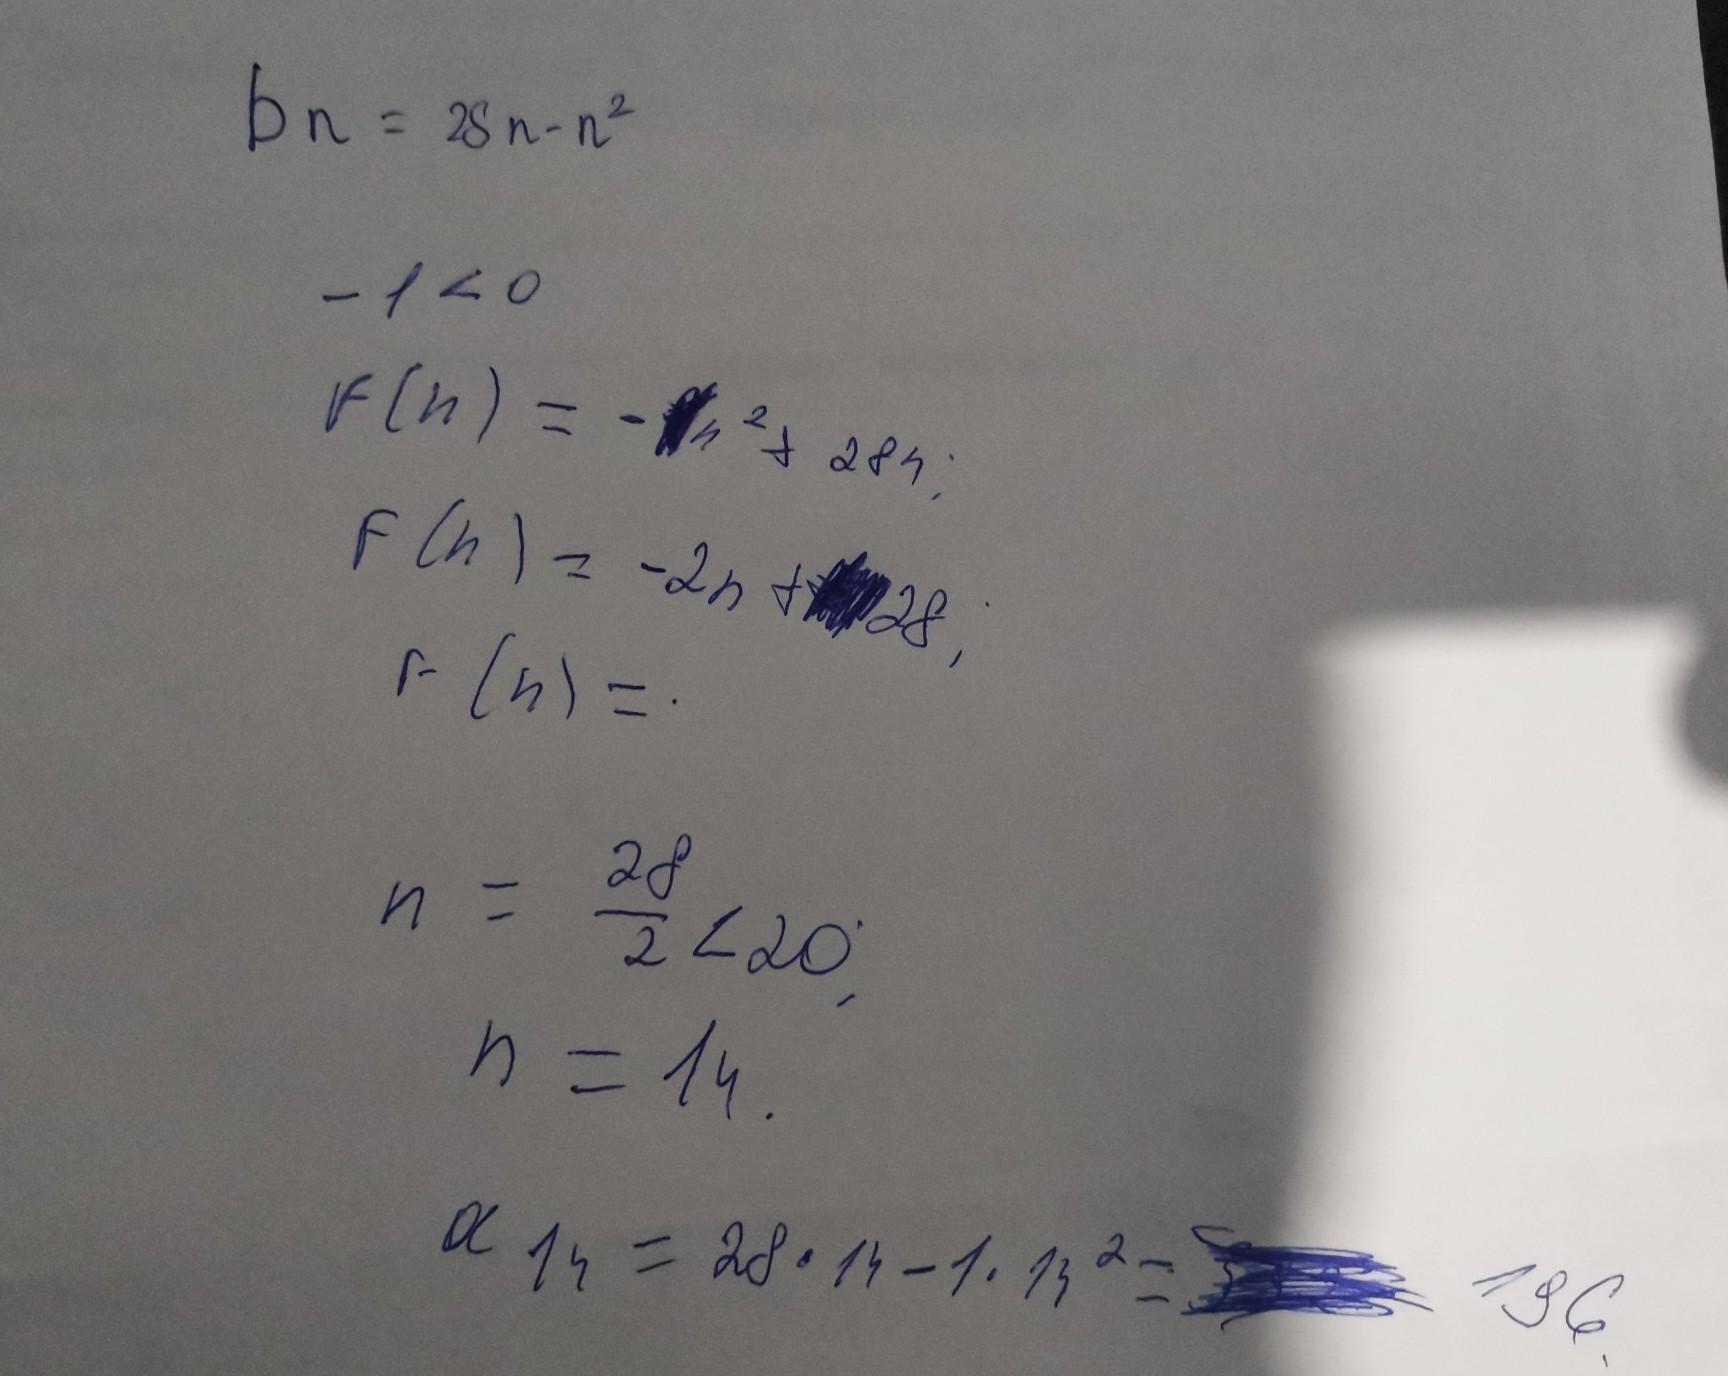 bn = 28n-n²
-1<0
F(n) = -n²+ 28n;
F(n) = -2n + 28;
F(n) = .
n = 28/2 <20;
n = 14.
a 14 = 28·14-1·14² = 196.